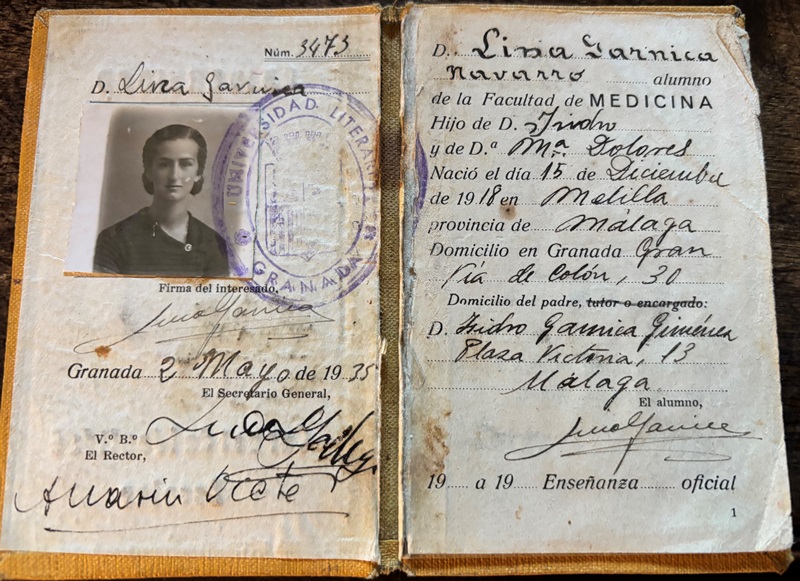 Núm. 3473
D. Lina Garnica
UNIVERSIDAD LITERARIA DE
GRANADA
Firma del interesado,
Lina Garnica
Granada 2 Mayo de 1935
El Secretario General,
V.º B.º
El Rector,
A Marin
D. Lina Garnica
Navarro alumno
de la Facultad de MEDICINA
Hijo de D. Isidro
y de D.ª Mª. Dolores
Nació el día 15 de Diciembre
de 1918 en Melilla
provincia de Málaga
Domicilio en Granada Gran
Via de Colón, 30
Domicilio del padre, tutor o encargado:
D. Isidro Garnica Giménez
Plaza Victoria, 13
Málaga
El alumno,
Lina Garnica
19 a 19 Enseñanza oficial
1